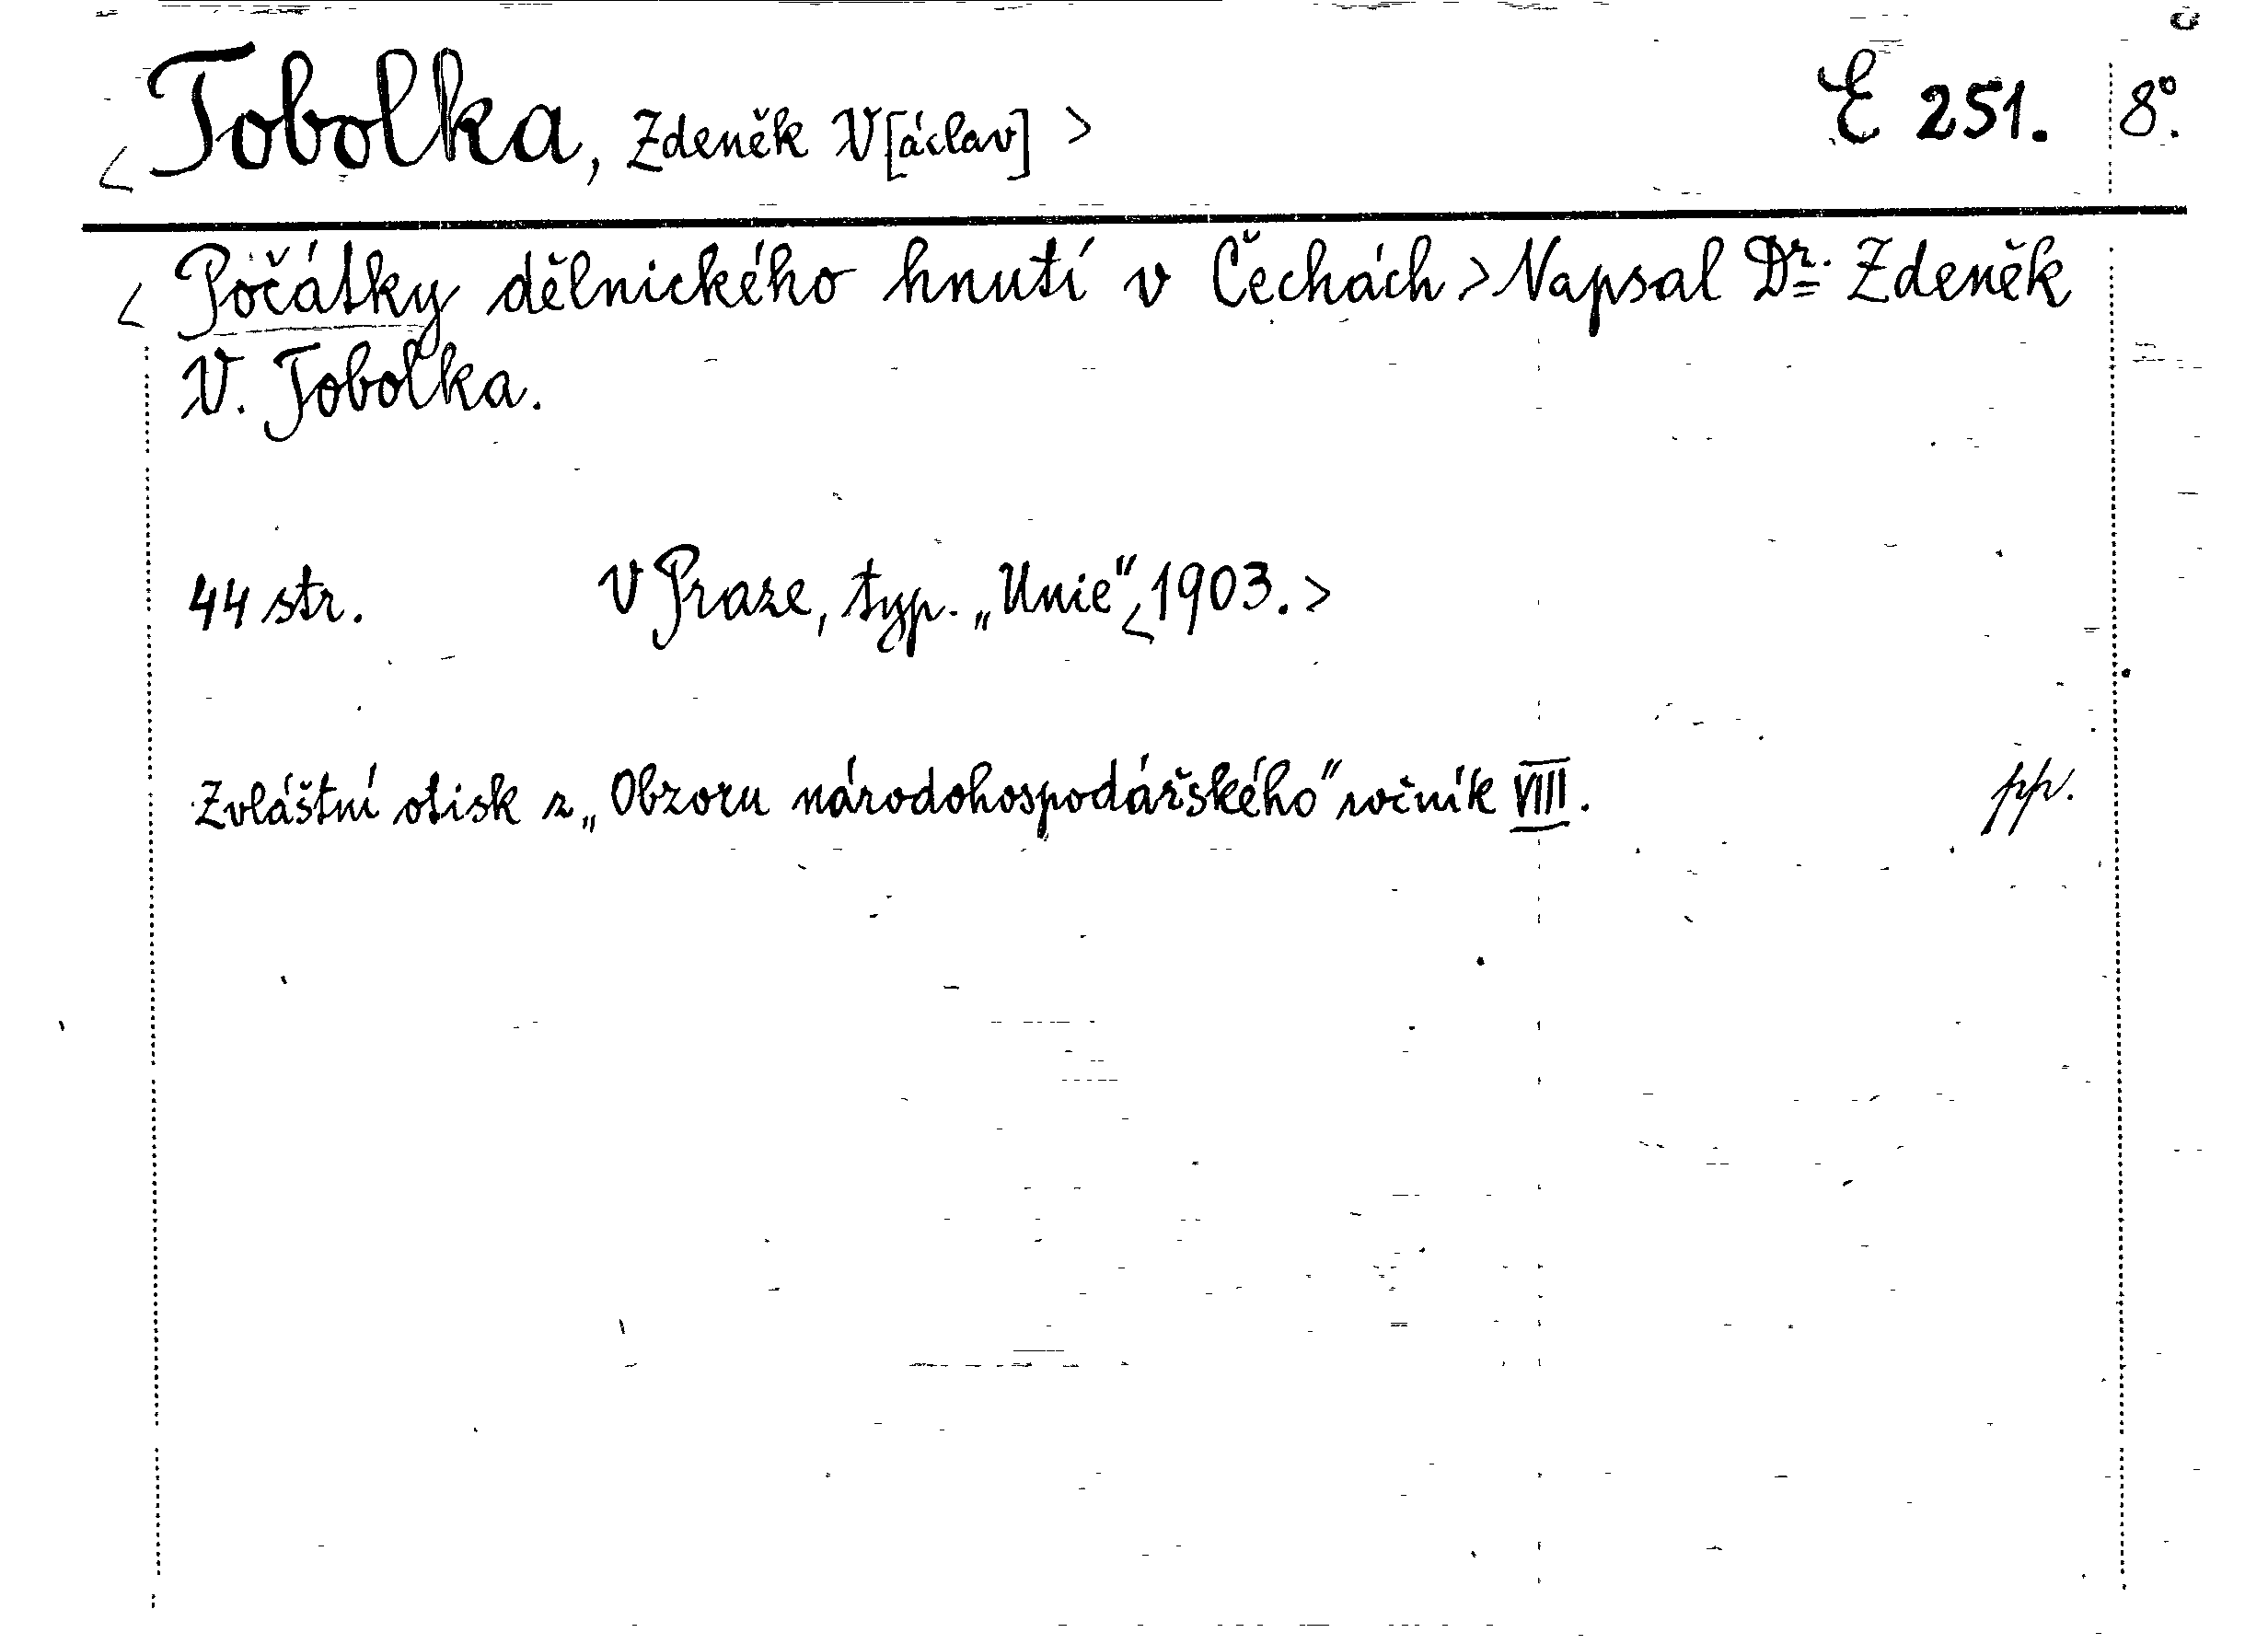 <Tobolka, Zdeněk V[áclav]> E 251. 8°.
<Počátky dělnického hnutí v Čechách> Napsal Dr. Zdeněk
V. Tobolka.
44 str. V Praze, typ. „Unie“, <1903.>
Zvláštní otisk z „Obzoru národohospodářského“ ročník VIII. pp.